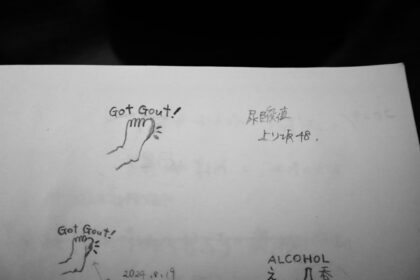 Got Gout!
尿酸値
上り坂48.
Got Gout!
2024.8.19
ALCOHOL